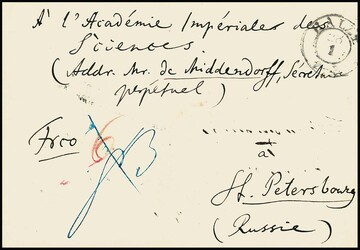 A l'Académie Impériales des
Sciences.
(Addr. Mr. de Middendorff, Secrétaire
perpetuel)
Frco
à
St. Petersbourg
(Russie)